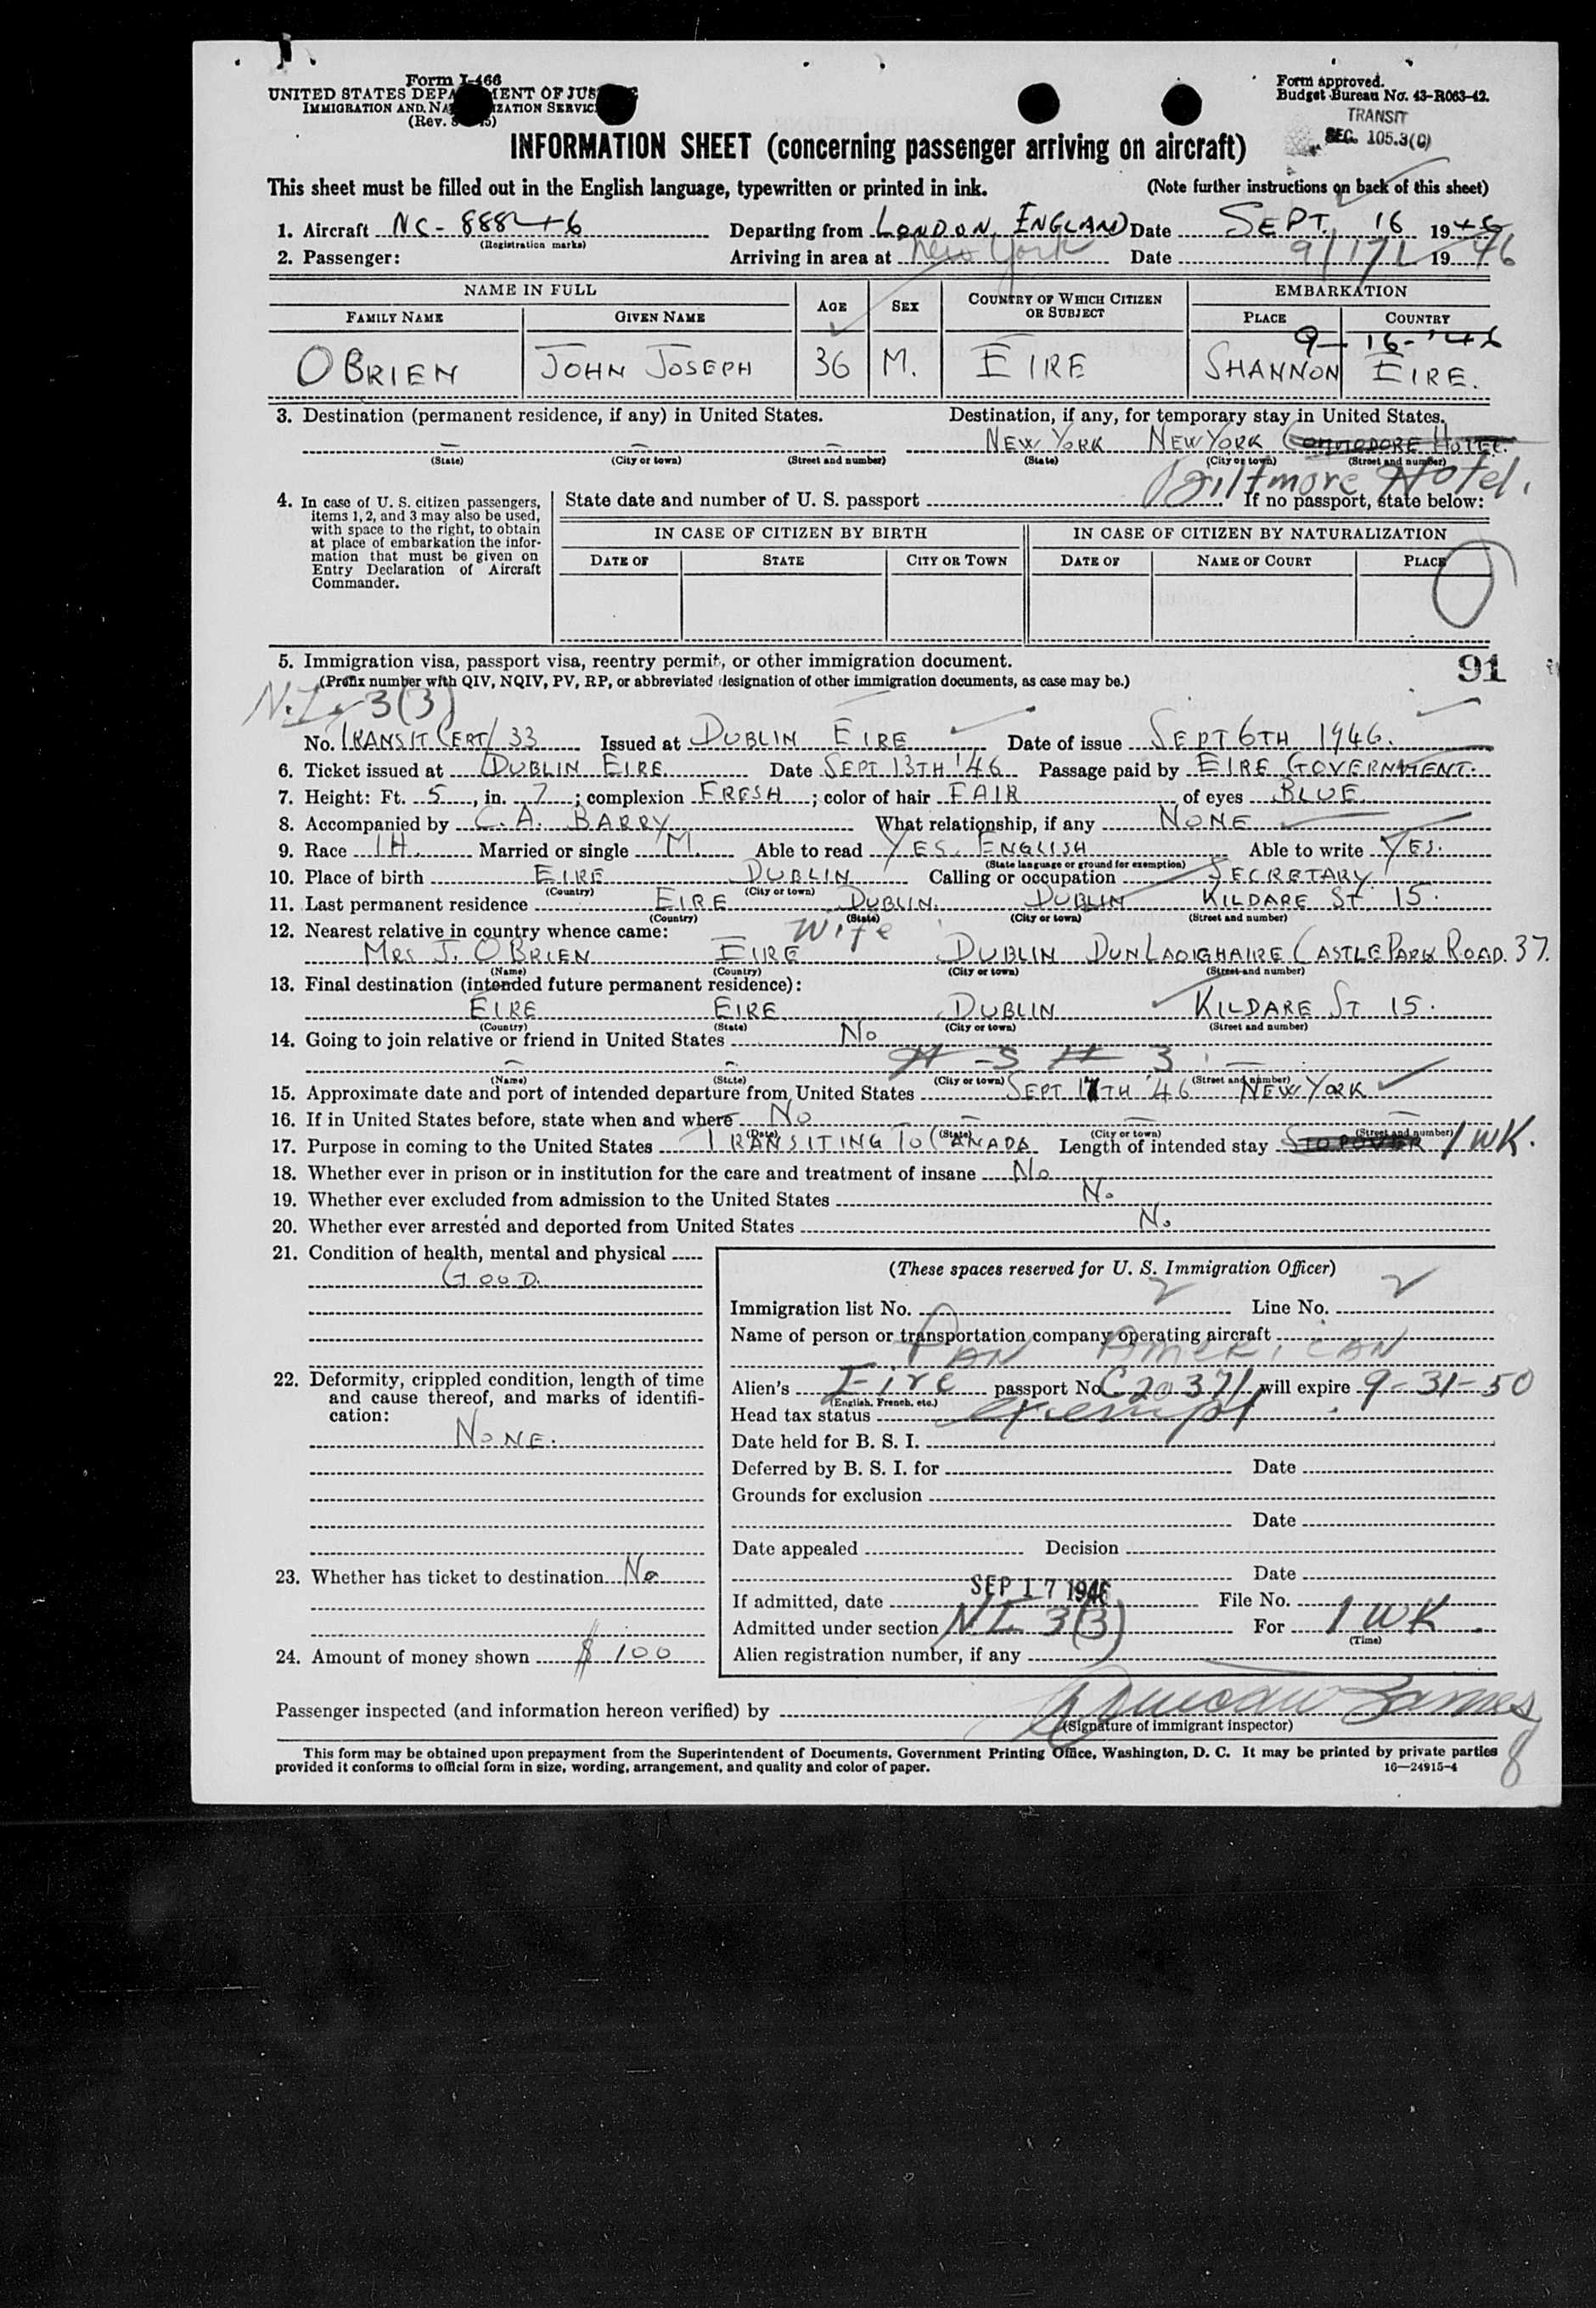 Form I-466
UNITED STATES DEPARTMENT OF JUSTICE
IMMIGRATION AND NATURALIZATION SERVICE
(Rev.
Form approved.
Budget Bureau No. 43-R063-42.
TRANSIT
SEC. 105.3(C)
INFORMATION SHEET (concerning passenger arriving on aircraft)
This sheet must be filled out in the English language, typewritten or printed in ink. (Note further instructions on back of this sheet)
1. Aircraft NC-88846 Departing from LONDON, ENGLAND Date SEPT. 16 1946
(Registration marks)
2. Passenger: Arriving in area at New York Date 9/17/ 1946
NAME IN FULL AGE SEX COUNTRY OF WHICH CITIZEN OR SUBJECT EMBARKATION
FAMILY NAME GIVEN NAME PLACE COUNTRY
9-16-'46
OBRIEN JOHN JOSEPH 36 M. EIRE SHANNON EIRE.
3. Destination (permanent residence, if any) in United States. Destination, if any, for temporary stay in United States.
— — — NEW YORK NEW YORK COMMODORE HOTEL.
(State) (City or town) (Street and number) (State) (City or town) (Street and number)
Biltmore Hotel.
4. In case of U. S. citizen passengers, items 1, 2, and 3 may also be used, with space to the right, to obtain at place of embarkation the information that must be given on Entry Declaration of Aircraft Commander.
State date and number of U. S. passport If no passport, state below:
IN CASE OF CITIZEN BY BIRTH IN CASE OF CITIZEN BY NATURALIZATION
DATE OF STATE CITY OR TOWN DATE OF NAME OF COURT PLACE
5. Immigration visa, passport visa, reentry permit, or other immigration document.
91
(Prefix number with QIV, NQIV, PV, RP, or abbreviated designation of other immigration documents, as case may be.)
N.I. 3(3)
No. TRANSIT CERT/33 Issued at DUBLIN EIRE Date of issue SEPT 6TH 1946.
6. Ticket issued at DUBLIN EIRE. Date SEPT 13TH '46 Passage paid by EIRE GOVERNMENT.
7. Height: Ft. 5, in. 7; complexion FRESH; color of hair FAIR of eyes BLUE.
8. Accompanied by C. A. BARRY What relationship, if any NONE
9. Race IH. Married or single M. Able to read YES. ENGLISH Able to write YES.
(State language or ground for exemption)
10. Place of birth EIRE DUBLIN Calling or occupation SECRETARY
(Country) (City or town)
11. Last permanent residence EIRE DUBLIN. DUBLIN KILDARE ST 15.
(Country) (State) (City or town) (Street and number)
12. Nearest relative in country whence came: Wife
MRS J. OBRIEN EIRE DUBLIN DUNLAOIGHAIRE CASTLE PARK ROAD. 37.
(Name) (Country) (City or town) (Street and number)
13. Final destination (intended future permanent residence):
EIRE EIRE DUBLIN KILDARE ST 15.
(Country) (State) (City or town) (Street and number)
14. Going to join relative or friend in United States No
(Name) (State) (City or town) (Street and number)
15. Approximate date and port of intended departure from United States SEPT 17TH '46 NEW YORK
16. If in United States before, state when and where No
(Date) (State) (City or town) (Street and number)
17. Purpose in coming to the United States TRANSITING TO CANADA Length of intended stay STOPOVER 1 WK.
18. Whether ever in prison or in institution for the care and treatment of insane No
19. Whether ever excluded from admission to the United States No
20. Whether ever arrested and deported from United States No
21. Condition of health, mental and physical
GOOD.
(These spaces reserved for U. S. Immigration Officer)
Immigration list No. 2 Line No. 2
Name of person or transportation company operating aircraft
PAN AMERICAN
22. Deformity, crippled condition, length of time and cause thereof, and marks of identification:
NONE.
Alien's Eire passport No. C20371 will expire 9-31-50
(English, French, etc.)
Head tax status exempt
Date held for B. S. I.
Deferred by B. S. I. for Date
Grounds for exclusion
Date
Date appealed Decision
23. Whether has ticket to destination No
Date
If admitted, date SEP 17 1946 File No.
Admitted under section NI 3(3) For 1 WK.
(Time)
24. Amount of money shown $100
Alien registration number, if any
Passenger inspected (and information hereon verified) by
(Signature of immigrant inspector)
This form may be obtained upon prepayment from the Superintendent of Documents, Government Printing Office, Washington, D. C. It may be printed by private parties
provided it conforms to official form in size, wording, arrangement, and quality and color of paper. 16—24915-4
8